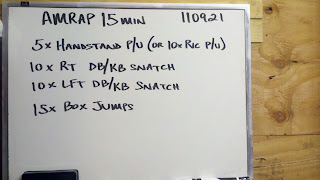 AMRAP 15 MIN 110921
5x HANDSTAND P/U (OR 10x RIC P/U)
10x RT DB/KB SNATCH
10x LFT DB/KB SNATCH
15x BOX JUMPS